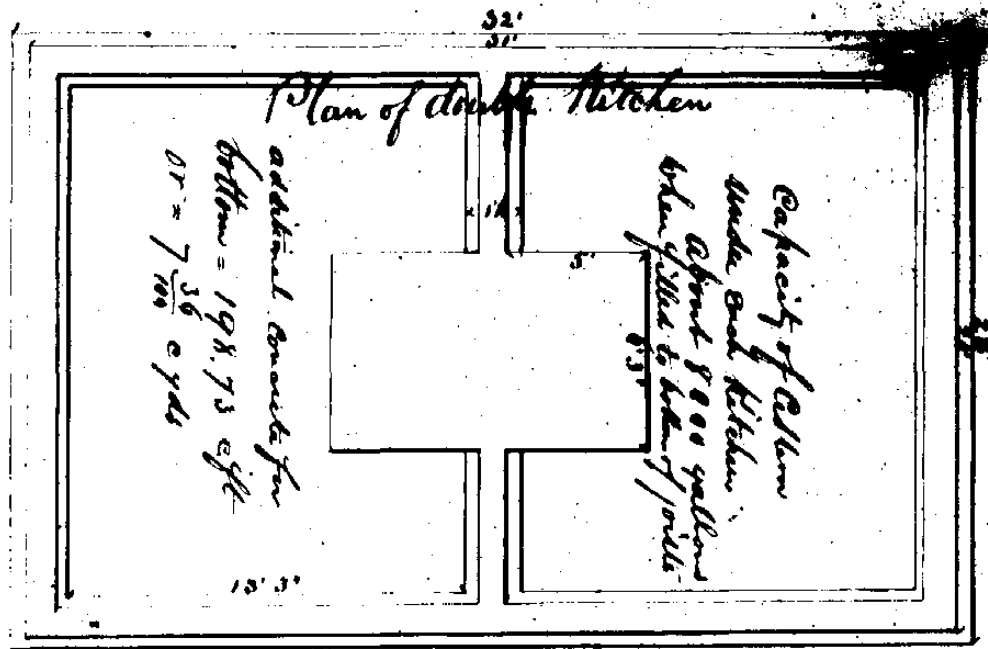 32'
31'
Plan of double Kitchen
Capacity of Cistern
under each Kitchen
About 8800 gallons
when filled to bottom of joists
additional concrete for
bottom = 198.73 cft
or = 7 36/100 c yds
5'
13' 3"